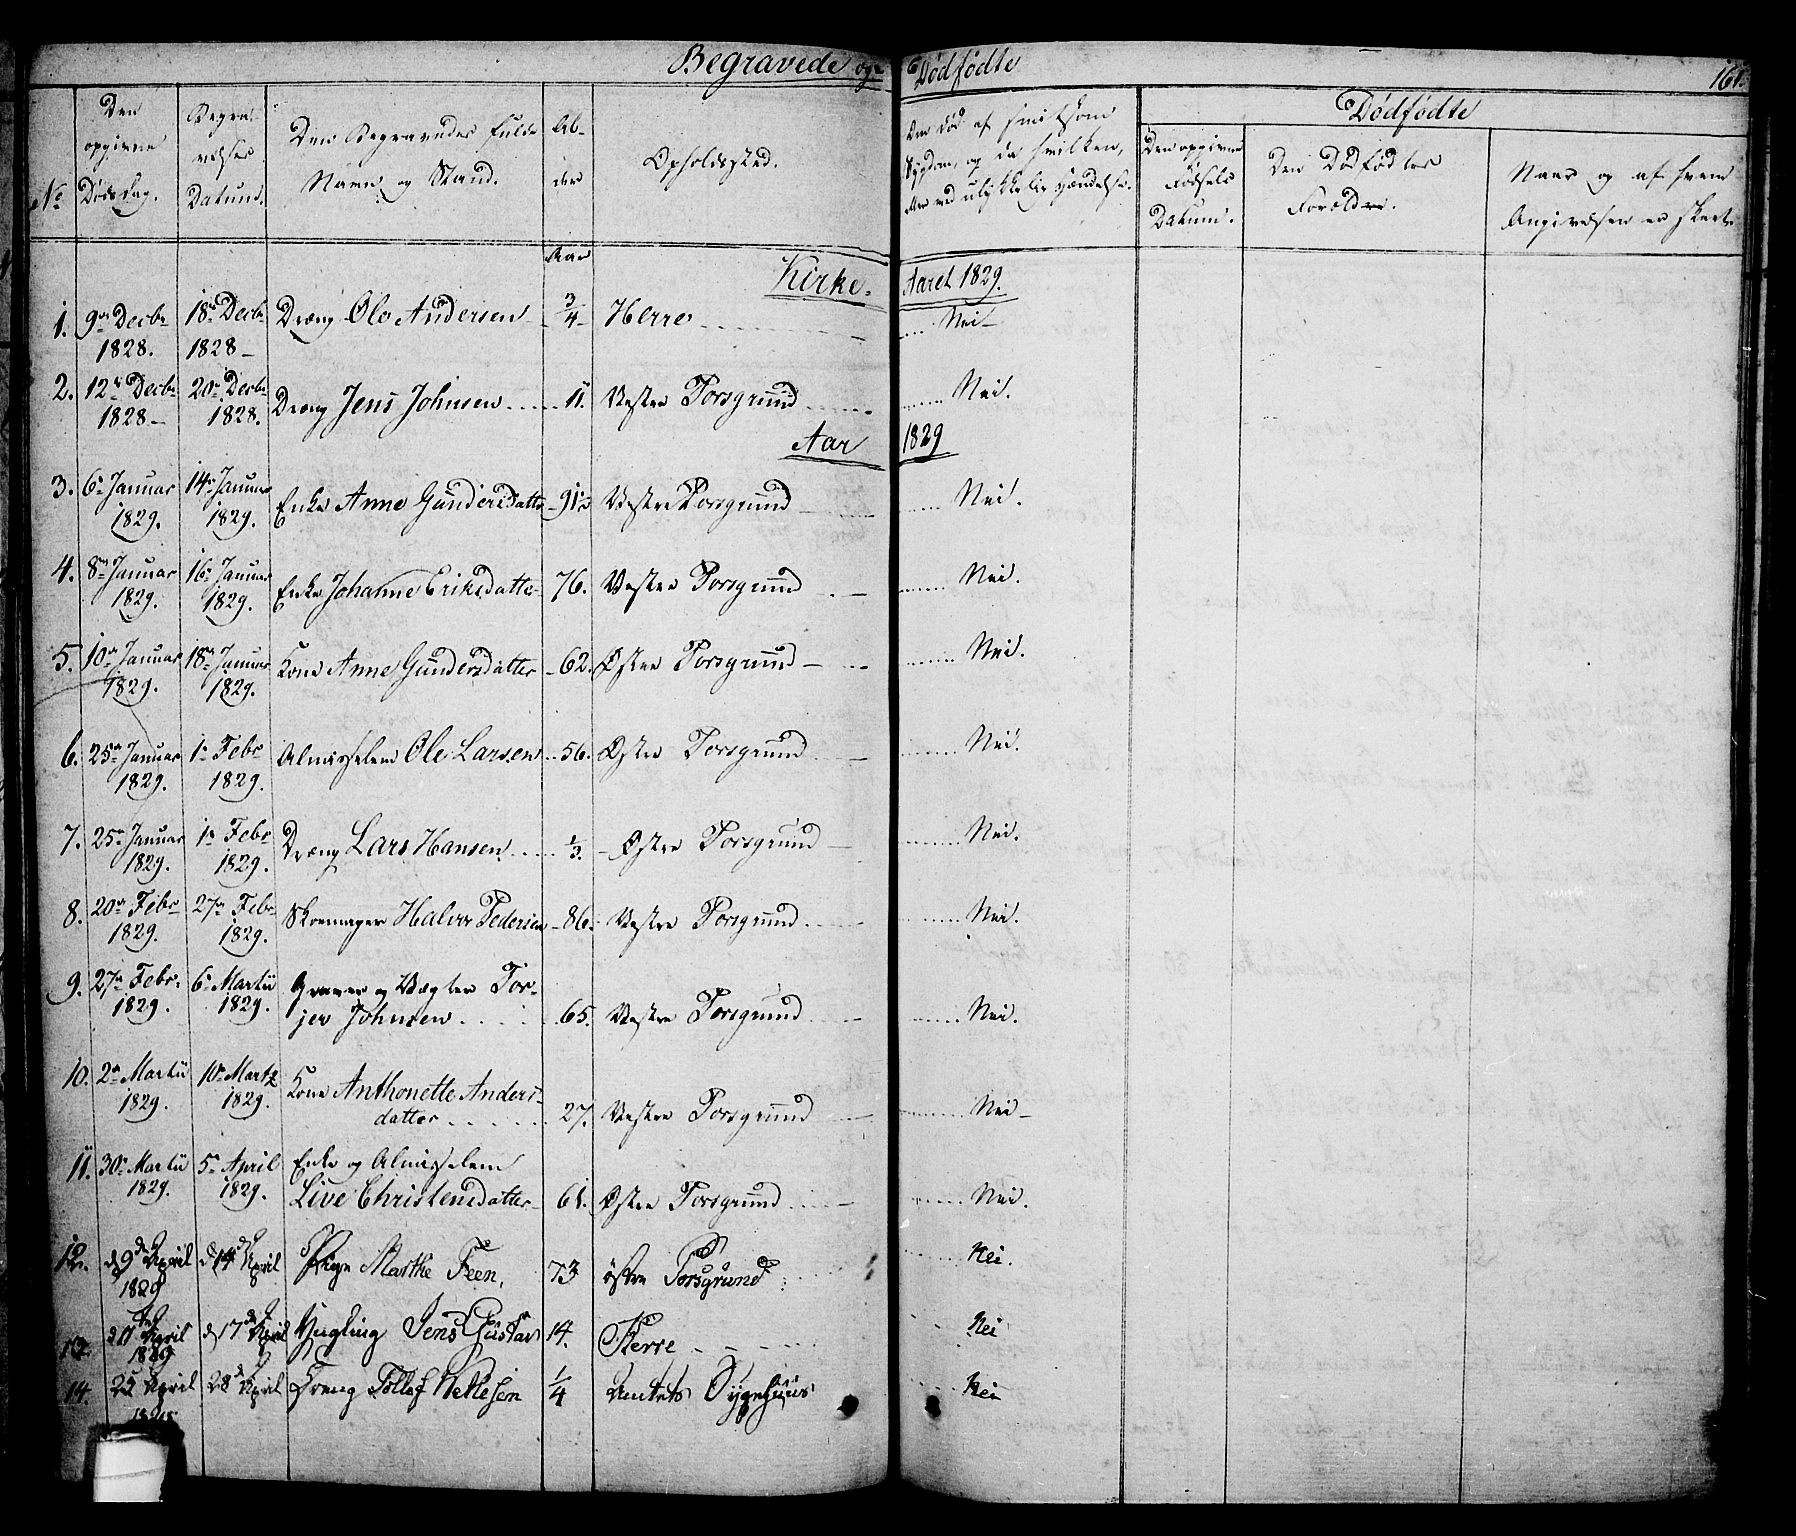 Begravede og Dødfødte
161.
No
Den opgivne Dødsdag.
Begravelses Datum.
Den Begravedes fulde Navn og Stand.
Alder
Opholdsted.
Om død af smitsom Sygdom, og da hvilken, eller ved ulykkelig Hændelse.
Dødfødte
Den opgivne Fødsels Datum.
Den Dødfødtes Forældre.
Naar og af hvem Angivelsen er skeet.
Aar
Kirke-Aaret 1829.
1. 9de Decbr 1828. 18de Decbr 1828 Dreng Ole Andersen 3/4 Herre Nei
2. 12te Decbr 1828 20de Decbr 1828. Dreng Jens Johnsen 11. Vestre Porsgrund Nei.
Aar 1829
3. 6te Januar 1829. 14de Januar 1829. Enke Anne Gundersdatter 91 1/2 Vestre Porsgrund Nei.
4. 8de Januar 1829. 16de Januar 1829. Enke Johanne Eriksdatter 76. Vestre Porsgrund Nei.
5. 10de Januar 1829. 18de Januar 1829. Kone Anne Gundersdatter 62. Østre Porsgrund Nei.
6. 25de Januar 1829. 1ste Febr 1829. Almisselem Ole Larsen 56. Østre Porsgrund Nei.
7. 25de Januar 1829. 1ste Febr 1829. Dreng Lars Hansen 1/3. Østre Porsgrund Nei.
8. 20de Febr 1829. 27de Febr 1829. Skoemager Halvor Pedersen 86. Vestre Porsgrund Nei.
9. 27de Febr. 1829. 6te Martii 1829. Graver og Vægter Tor-
jer Johnsen 65. Vestre Porsgrund Nei.
10. 2den Martii 1829. 10de Marts 1829. Kone Anthonette Anders-
datter 27. Vestre Porsgrund Nei
11. 30te Martii 1829. 5te April 1829. Enke og Almisselem
Live Christensdatter 61. Østre Porsgrund Nei.
12. d 9de April 1829 d 14de April Pige Marthe Feen, 73 østre Porsgrund Nei.
13. April 1829 d 17de April Yngling Jens Gustav 14. Herre Nei
14. 22 April 28de April Dreng Tollef 1/4 Amtets Sygehuus Nei